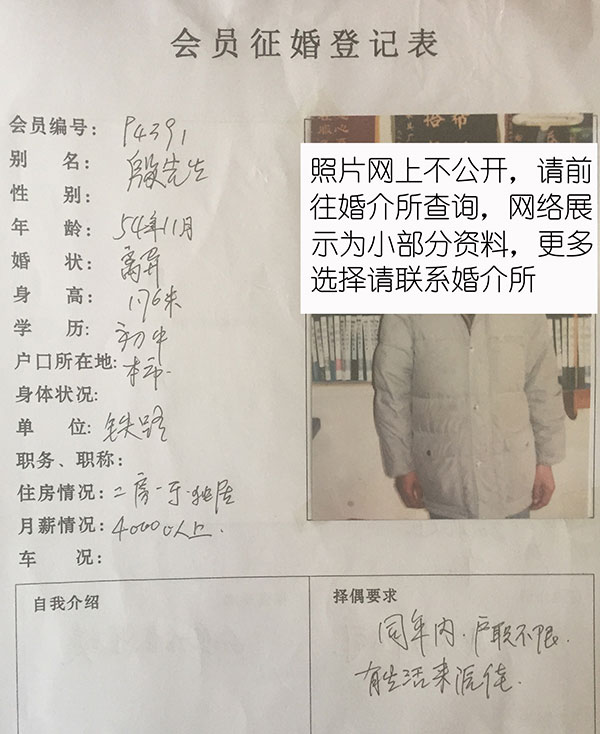 会员征婚登记表
会员编号：P4391
别　名：殷先生
性　别：
年　龄：54年11月
婚　状：离异
身　高：1.76米
学　历：初中
户口所在地：本市.
身体状况：
单　位：铁路
职务、职称：
住房情况：二房一厅.独居
月薪情况：4000以上.
车　况：
照片网上不公开，请前
往婚介所查询，网络展
示为小部分资料，更多
选择请联系婚介所
自我介绍
择偶要求
同年内.户职不限.
有生活来源.